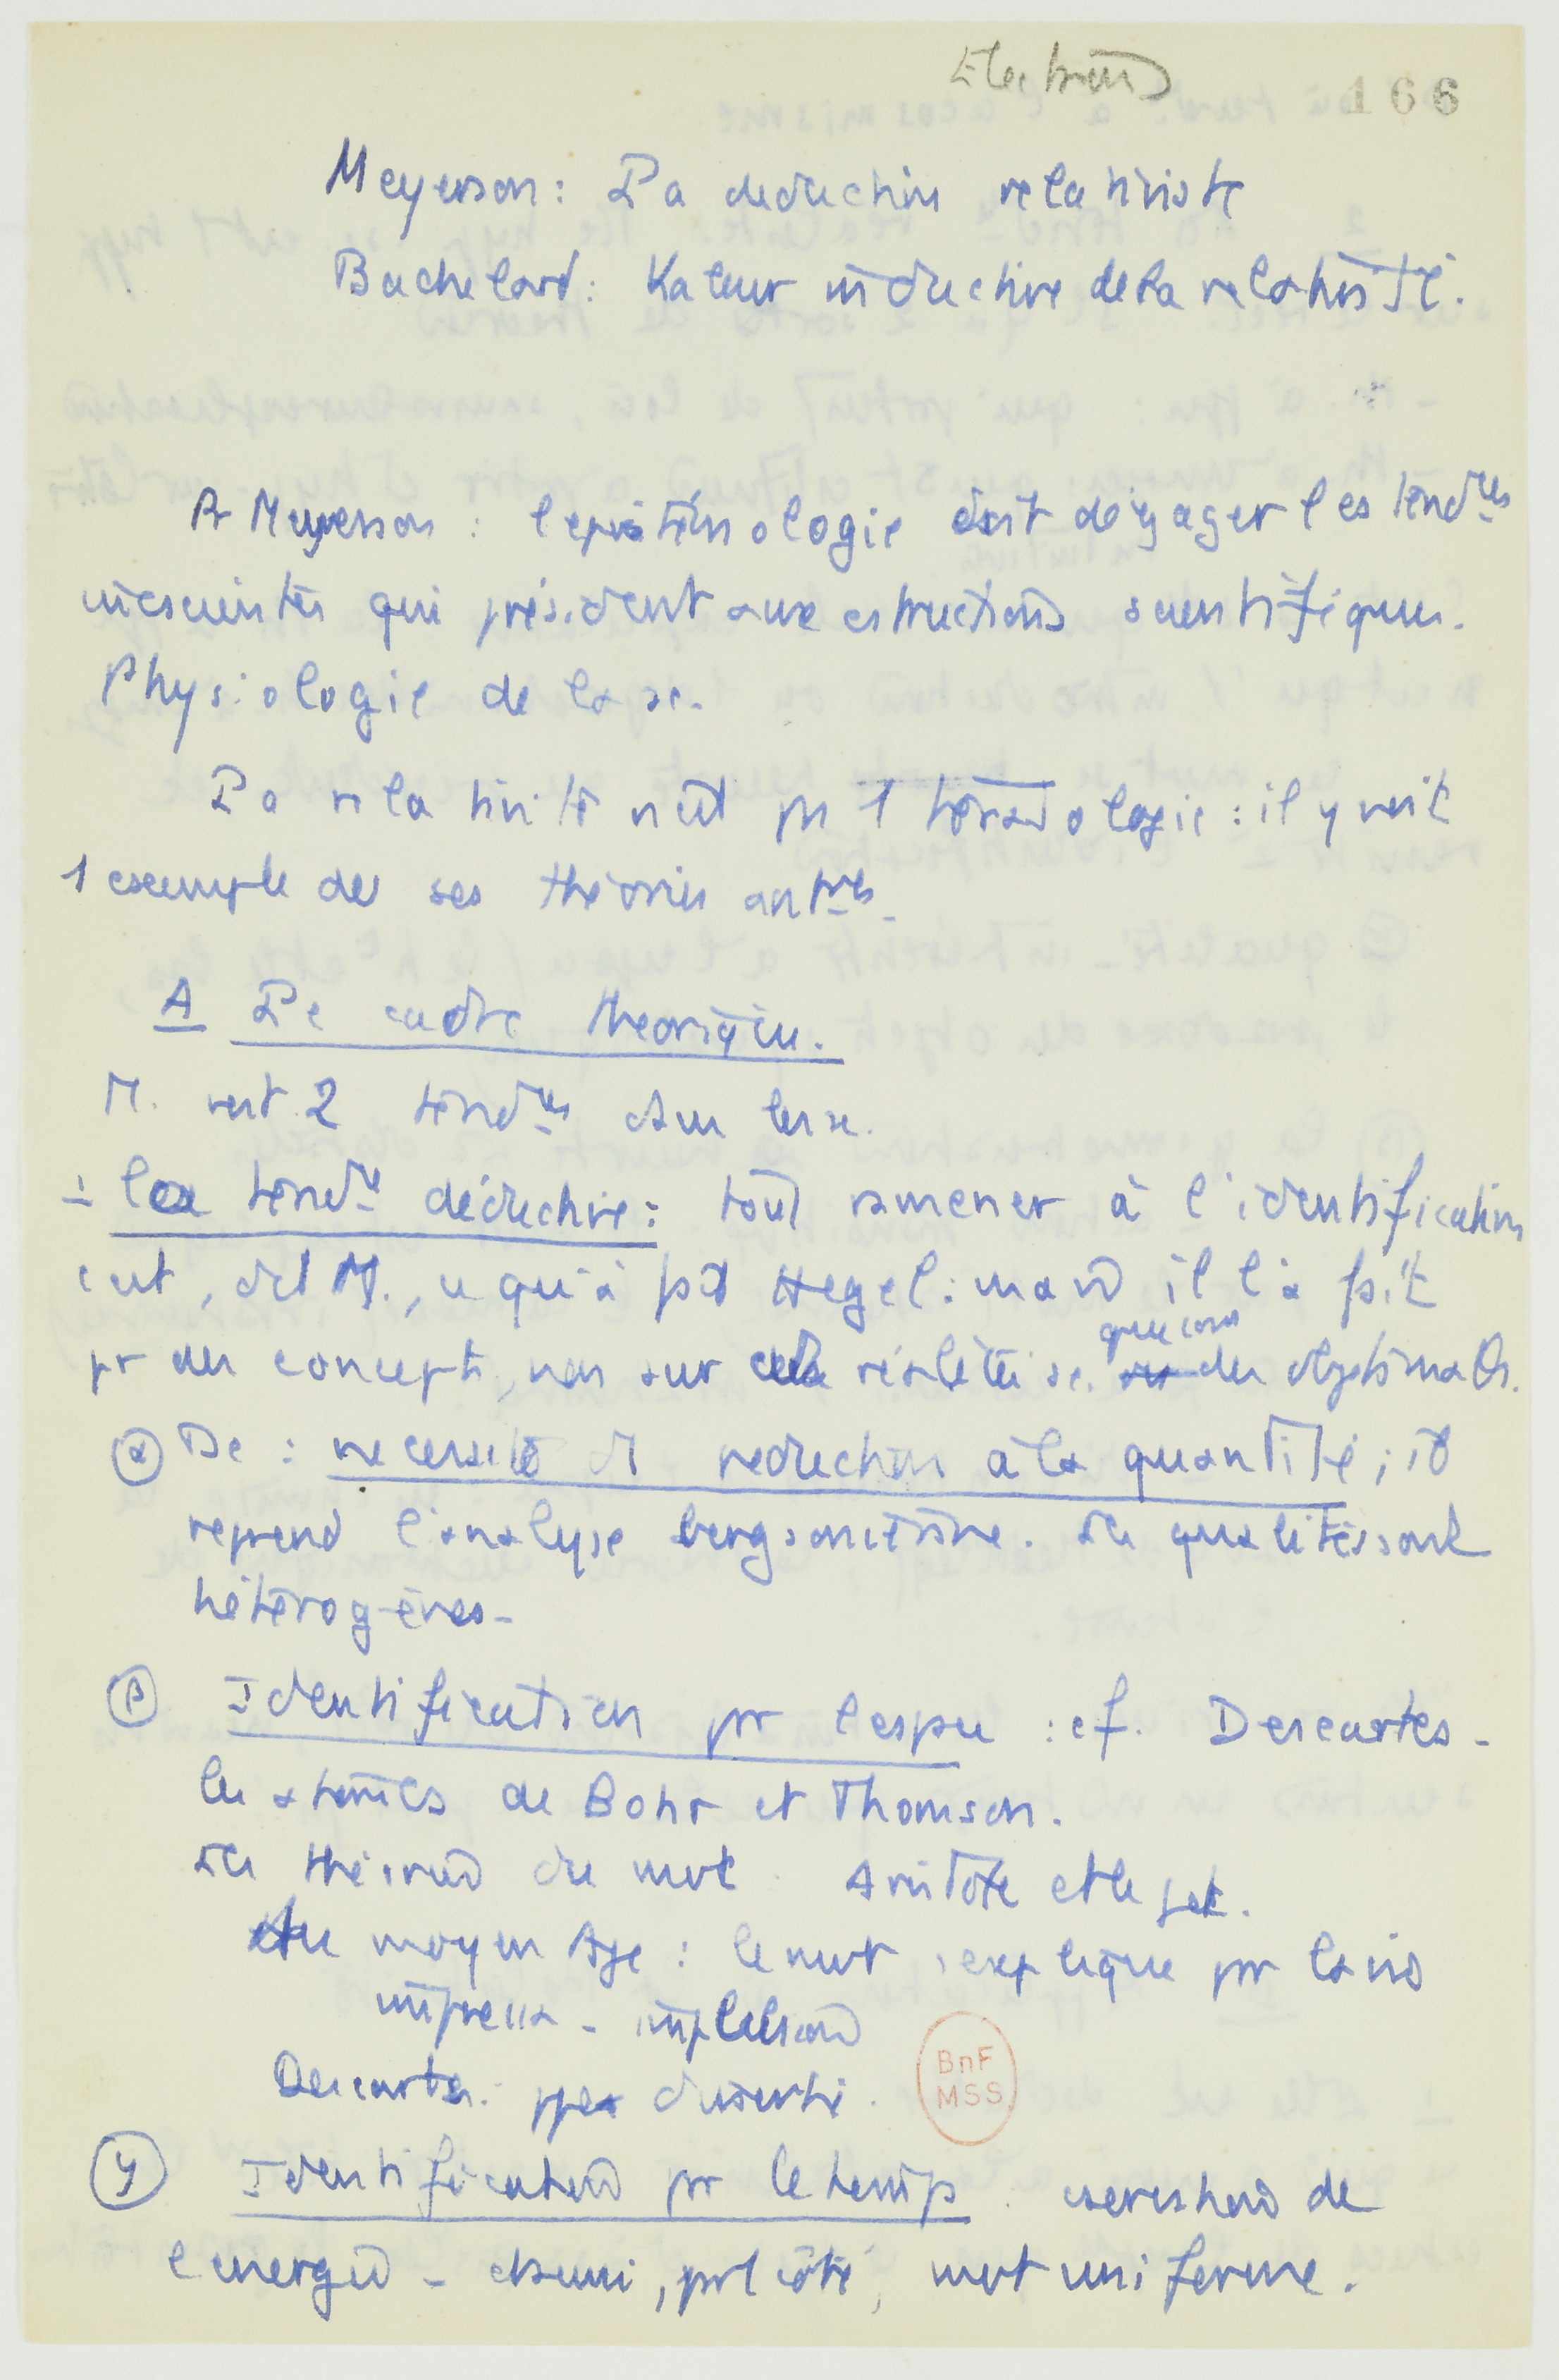 Electrons
166
Meyerson : La deduction relativiste
Bachelard : Valeur inductive de la relativité.
Pr Meyerson : l'epistémologie doit dégager les tendces
inconscientes qui président aux constructions scientifiques.
Physiologie de la sc.
La relativité n'est pas 1 : il y voit
1 exemple de ses théories antres.
A Le cadre theorique.
M. voit 2 tendces ds les sc.
1 la tendce déductive : tout ramener à l'identification
c'est, dit M., ce qu'a fait Hegel : mais il l'a fait
pr des concepts, non sur réalités sc. que sont des objets maths.
α De : necessité d' 1 reduction à la quantité ; il
reprend l'analyse bergsonienne. Les qualités sont
hétérogènes -
β Identification pr l'espace : cf. Descartes -
les atomes de Bohr et Thomson.
Les théories du mvt. Aristote et le
Au moyen Age : le mvt s'explique pr la vis
impressa - impulsion
Descartes : ppe d'inertie.
γ Identification pr le temps : conservation de
l'energie - , mvt uniforme.
BnF
MSS